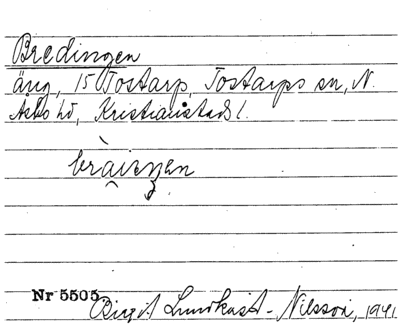 Bredingen
äng, 15 Tostarp, Tostarps sn, N.
Åsbo hd, Kristianstads l.
Nr 5505
Birgit Lundkvist-Nilsson, 1941